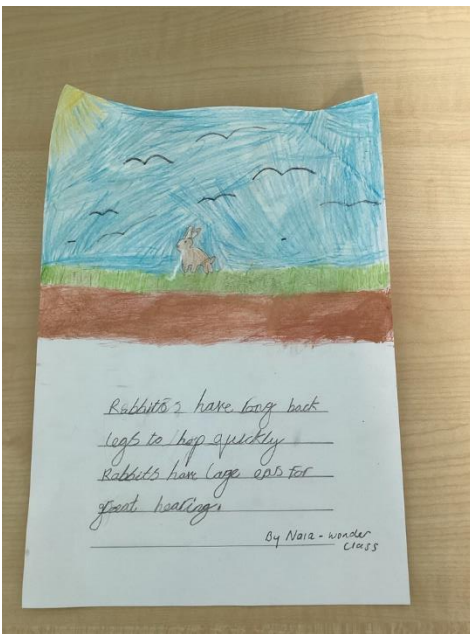 Rabbits have long back
legs to hop quickly
Rabbits have large ears for
great hearing.
By Naia - wonder
class